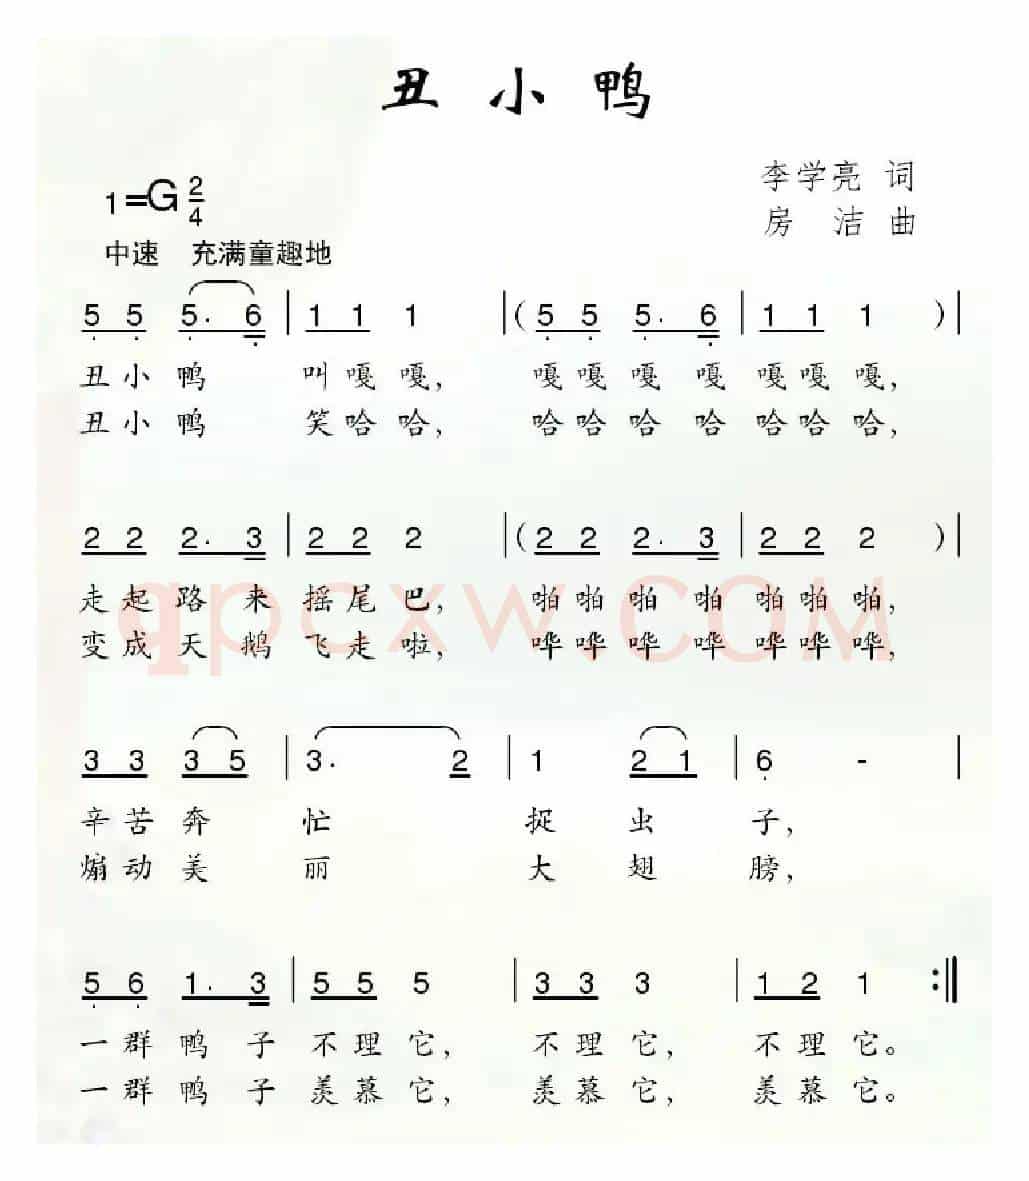 丑小鸭
李学亮 词
1=G 2/4
房 洁 曲
中速 充满童趣地
5 5 5. 6 | 1 1 1 |( 5 5 5. 6 | 1 1 1 )|
丑小鸭 叫嘎嘎, 嘎嘎嘎 嘎 嘎嘎嘎,
丑小鸭 笑哈哈, 哈哈哈 哈 哈哈哈,
2 2 2. 3 | 2 2 2 |( 2 2 2. 3 | 2 2 2 )|
走起路来摇尾巴, 啪啪啪 啪 啪啪啪,
变成天鹅飞走啦, 哗哗哗 哗 哗哗哗,
qpcxw.COM
3 3 3 5 | 3. 2 | 1 2 1 | 6 - |
辛苦奔 忙 捉 虫 子,
煽动美 丽 大 翅 膀,
5 6 1. 3 | 5 5 5 | 3 3 3 | 1 2 1 :||
一群鸭子不理它, 不理它, 不理它。
一群鸭子羡慕它, 羡慕它, 羡慕它。